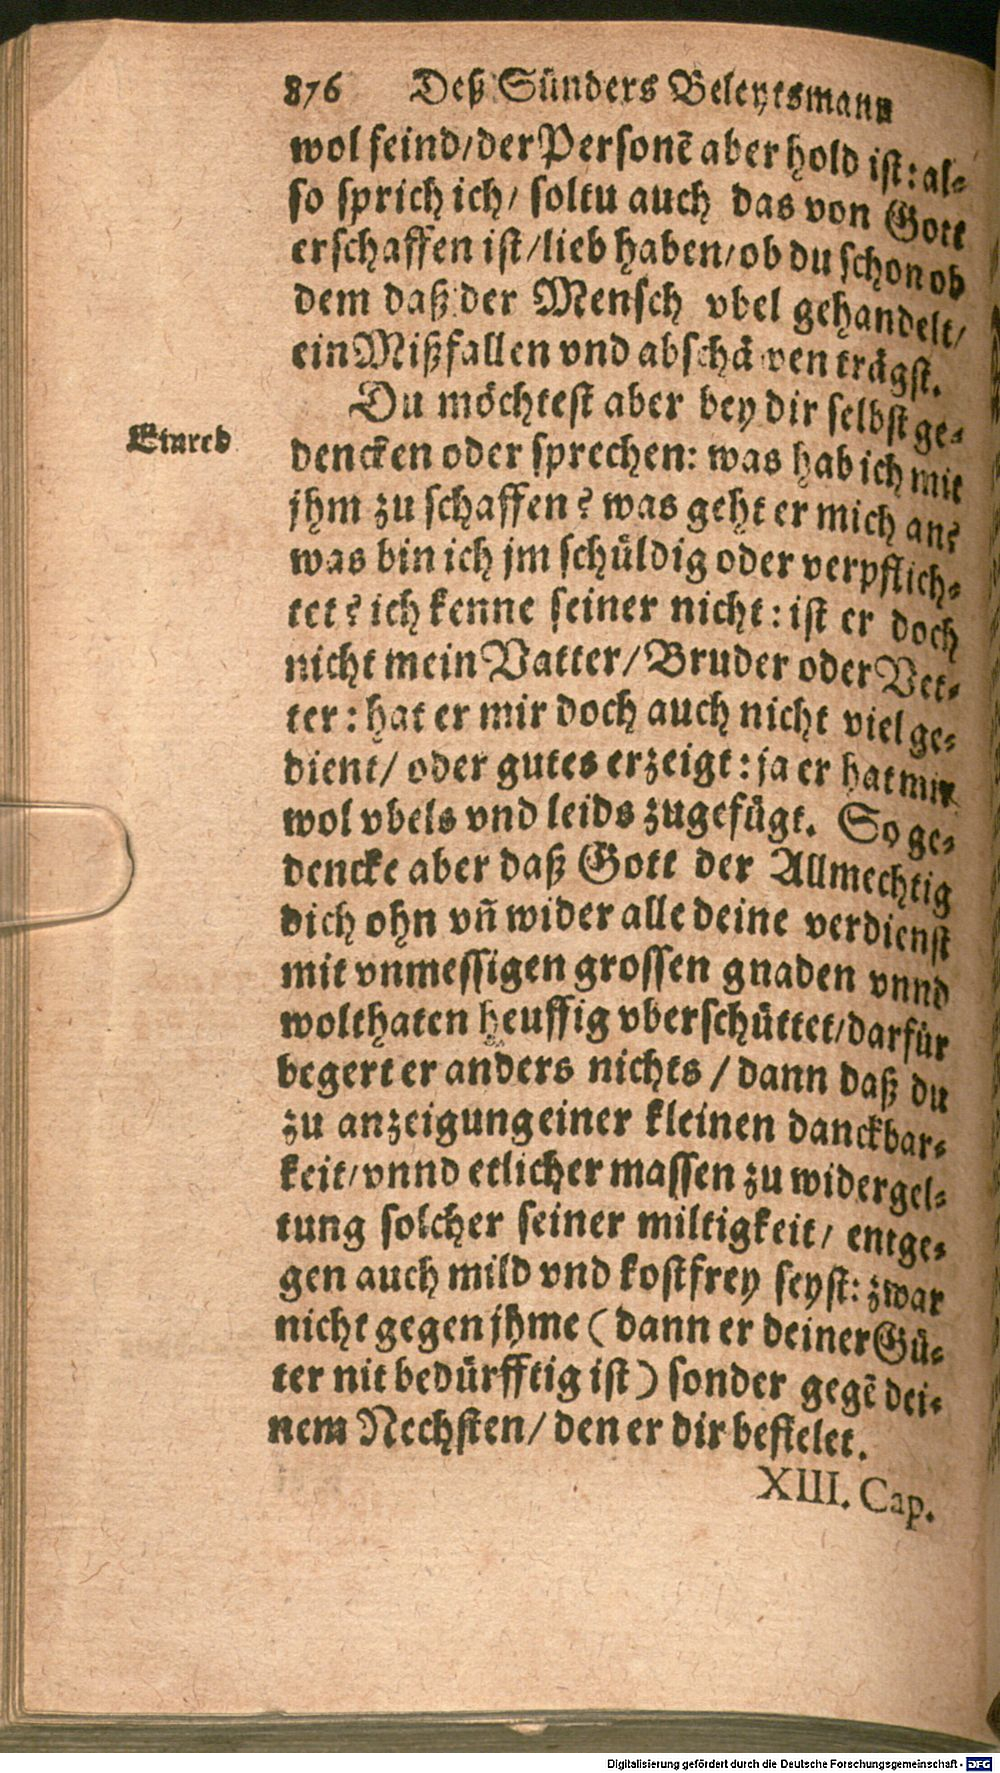 876 Deß Sünders Beleytsmann
wol feind/der Personẽ aber hold ist: al-
so sprich ich/ soltu auch das von Gott
erschaffen ist/lieb haben/ob du schon ob
dem daß der Mensch vbel gehandelt/
ein Mißfallen vnd abschäwen trägst.
Du möchtest aber bey dir selbst ge-
Einred
dencken oder sprechen: was hab ich mit
jhm zu schaffen? was geht er mich an?
was bin ich jm schüldig oder verpflich-
tet? ich kenne seiner nicht: ist er doch
nicht mein Vatter/Bruder oder Vet-
ter: hat er mir doch auch nicht viel ge-
dient/ oder gutes erzeigt: ja er hat mir
wol vbels vnd leids zugefügt. So ge-
dencke aber daß Gott der Allmechtig
dich ohn vñ wider alle deine verdienst
mit vnmessigen grossen gnaden vnnd
wolthaten heuffig vberschüttet/darfür
begert er anders nichts / dann daß du
zu anzeigung einer kleinen danckbar-
keit/vnnd etlicher massen zu widergel-
tung solcher seiner miltigkeit/ entge-
gen auch mild vnd kostfrey seyst: zwar
nicht gegen jhme ( dann er deiner Gü-
ter nit bedürfftig ist ) sonder gegẽ dei-
nem Nechsten/ den er dir befielet.
XIII. Cap.
Digitalisierung gefördert durch die Deutsche Forschungsgemeinschaft - DFG